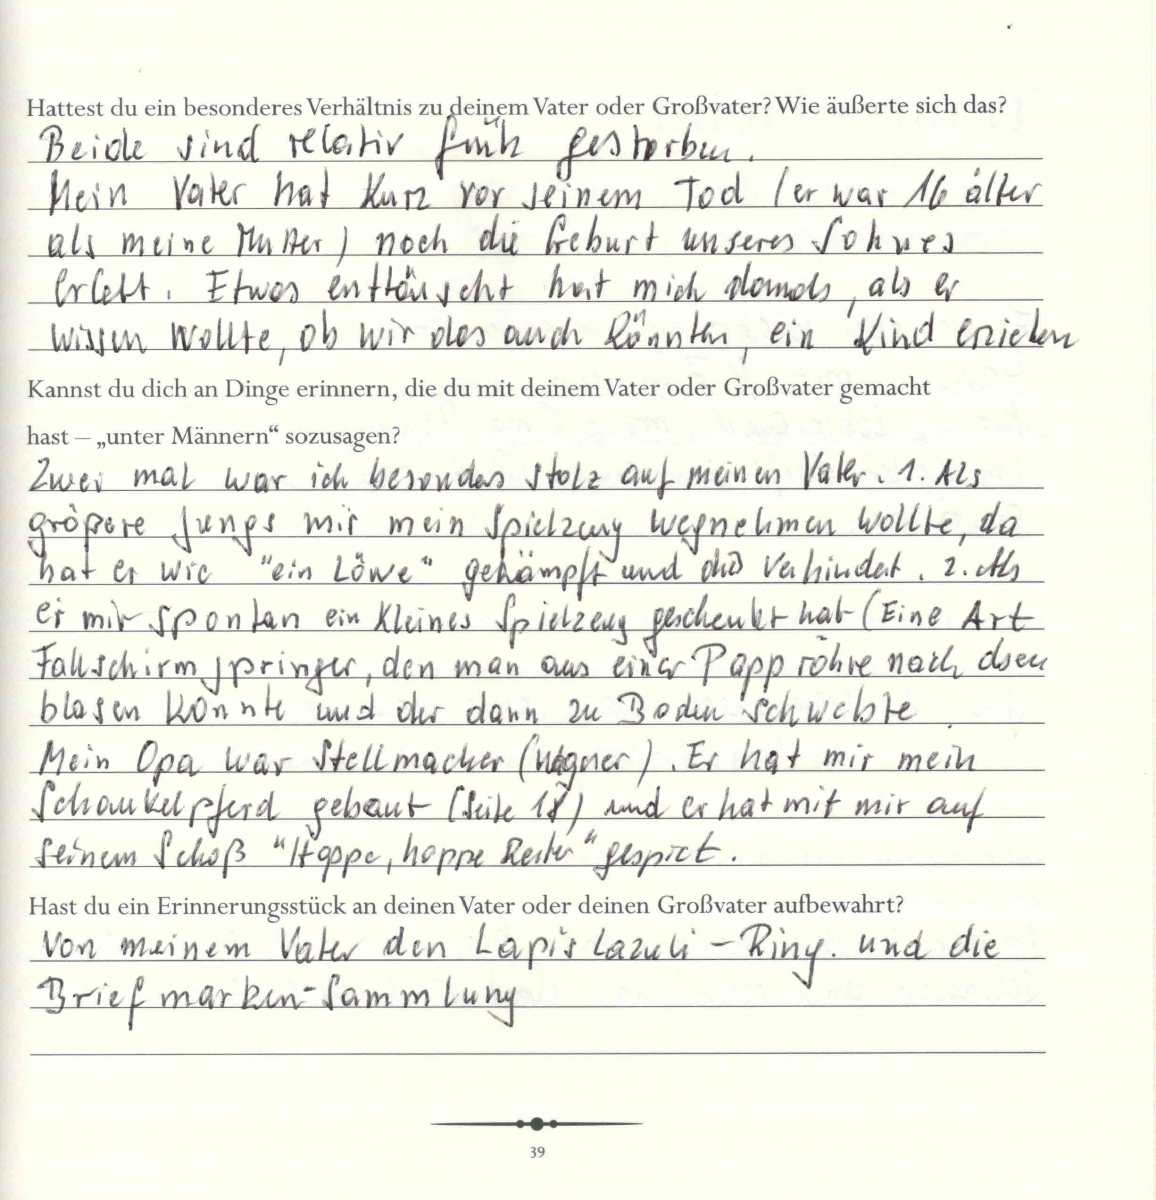 Hattest du ein besonderes Verhältnis zu deinem Vater oder Großvater? Wie äußerte sich das?
Beide sind relativ früh gestorben.
Mein Vater hat kurz vor seinem Tod (er war 16 älter
als meine Mutter) noch die Geburt unseres Sohnes
erlebt. Etwas enttäuscht hat mich damals, als er
wissen wollte, ob wir das auch könnten, ein Kind erziehen
Kannst du dich an Dinge erinnern, die du mit deinem Vater oder Großvater gemacht
hast – „unter Männern“ sozusagen?
Zwei mal war ich besonders stolz auf meinen Vater. 1. Als
größere Jungs mir mein Spielzeug wegnehmen wollte, da
hat er wie "ein Löwe" gekämpft und das verhindert. 2. Als
er mir spontan ein kleines Spielzeug geschenkt hat (Eine Art
Fallschirmspringer, den man aus einer Papp röhre nach
blasen konnte und der dann zu Boden schwebte
Mein Opa war Stellmacher (Wagner). Er hat mir mein
Schaukelpferd gebaut (Seite 18) und er hat mit mir auf
seinem Schoß "Hoppe, hoppe Reiter" gespielt.
Hast du ein Erinnerungsstück an deinen Vater oder deinen Großvater aufbewahrt?
Von meinem Vater den Lapislazuli-Ring. und die
Briefmarken-Sammlung
39